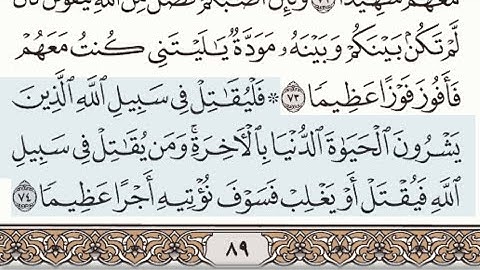 مَعَهُمْ شَهِيدًا ٧٢ وَلَئِنْ أَصَٰبَكُمْ فَضْلٌ مِّنَ ٱللَّهِ لَيَقُولَنَّ كَأَن
لَّمْ تَكُنۢ بَيْنَكُمْ وَبَيْنَهُۥ مَوَدَّةٌ يَٰلَيْتَنِى كُنتُ مَعَهُمْ
فَأَفُوزَ فَوْزًا عَظِيمًا ٧٣ ۞ فَلْيُقَٰتِلْ فِى سَبِيلِ ٱللَّهِ ٱلَّذِينَ
يَشْرُونَ ٱلْحَيَوٰةَ ٱلدُّنْيَا بِٱلْأَخِرَةِۚ وَمَن يُقَٰتِلْ فِى سَبِيلِ
ٱللَّهِ فَيُقْتَلْ أَوْ يَغْلِبْ فَسَوْفَ نُؤْتِيهِ أَجْرًا عَظِيمًا ٧٤
٨٩